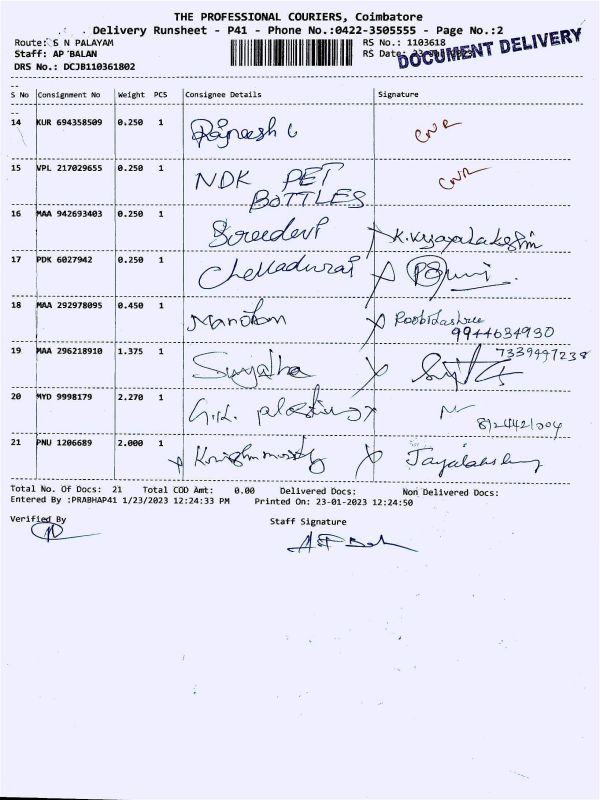 THE PROFESSIONAL COURIERS, Coimbatore
Delivery Runsheet - P41 - Phone No.:0422-3505555 - Page No.:2
Route: S N PALAYAM
RS No.: 1103618
Staff: AP BALAN
RS Date:
DOCUMENT DELIVERY
DRS No.: DCJB110361802
S No Consignment No Weight PCS Consignee Details Signature
14 KUR 694358509 0.250 1 Rajneesh C CNR
15 VPL 217029655 0.250 1 NDK PET CNR
BOTTLES
16 MAA 942693403 0.250 1 Sreedevi K. Vijayalakshmi
17 PDK 6027942 0.250 1 Chelladurai
18 MAA 292978095 0.450 1 Manoham
9944634930
19 MAA 296218910 1.375 1 Suyatha 7339497238
20 MYD 9998179 2.270 1 G.K. plastings
8124421004
21 PNU 1206689 2.000 1 Krishnmoorthy Jayalakshmy
Total No. Of Docs: 21 Total COD Amt: 0.00 Delivered Docs: Non Delivered Docs:
Entered By :PRABHAP41 1/23/2023 12:24:33 PM Printed On: 23-01-2023 12:24:50
Verified By
Staff Signature